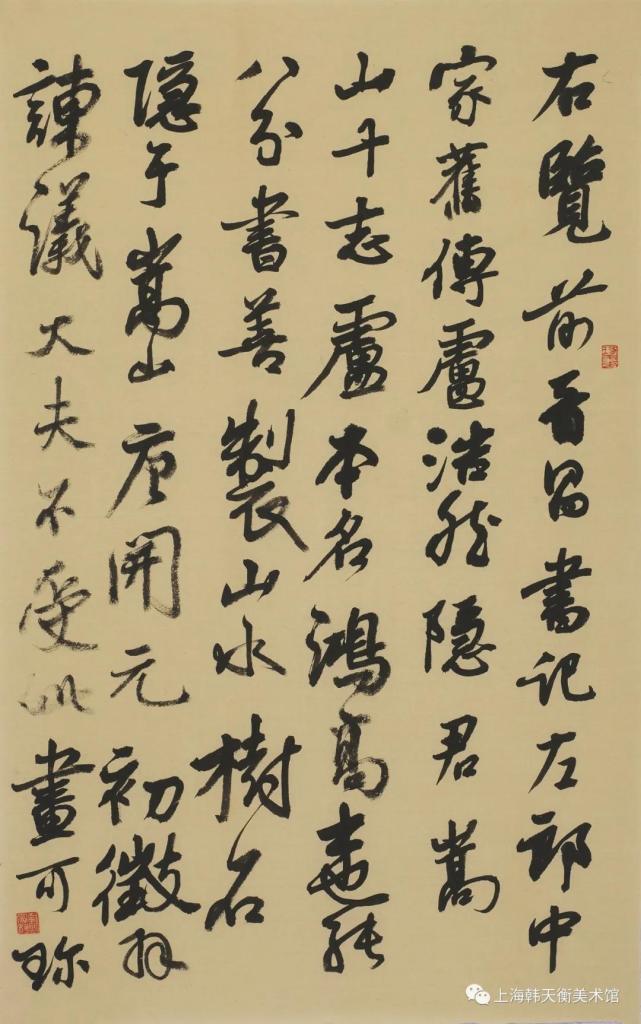 右覽前晋昌書記左郎中
家舊傳盧浩然隱君嵩
山十志盧本名鴻高士也能
八分書善製山水樹石
隱于嵩山唐開元初徵拜
諫議大夫不受此畫可珍
上海韩天衡美术馆